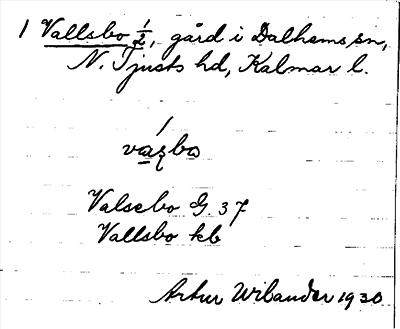 1 Vallsbo 1/2, gård i Dalhems sn,
N. Tjusts hd, Kalmar l.
Valsebo G. 37
Vallsbo kb
Artur Wibander 1930